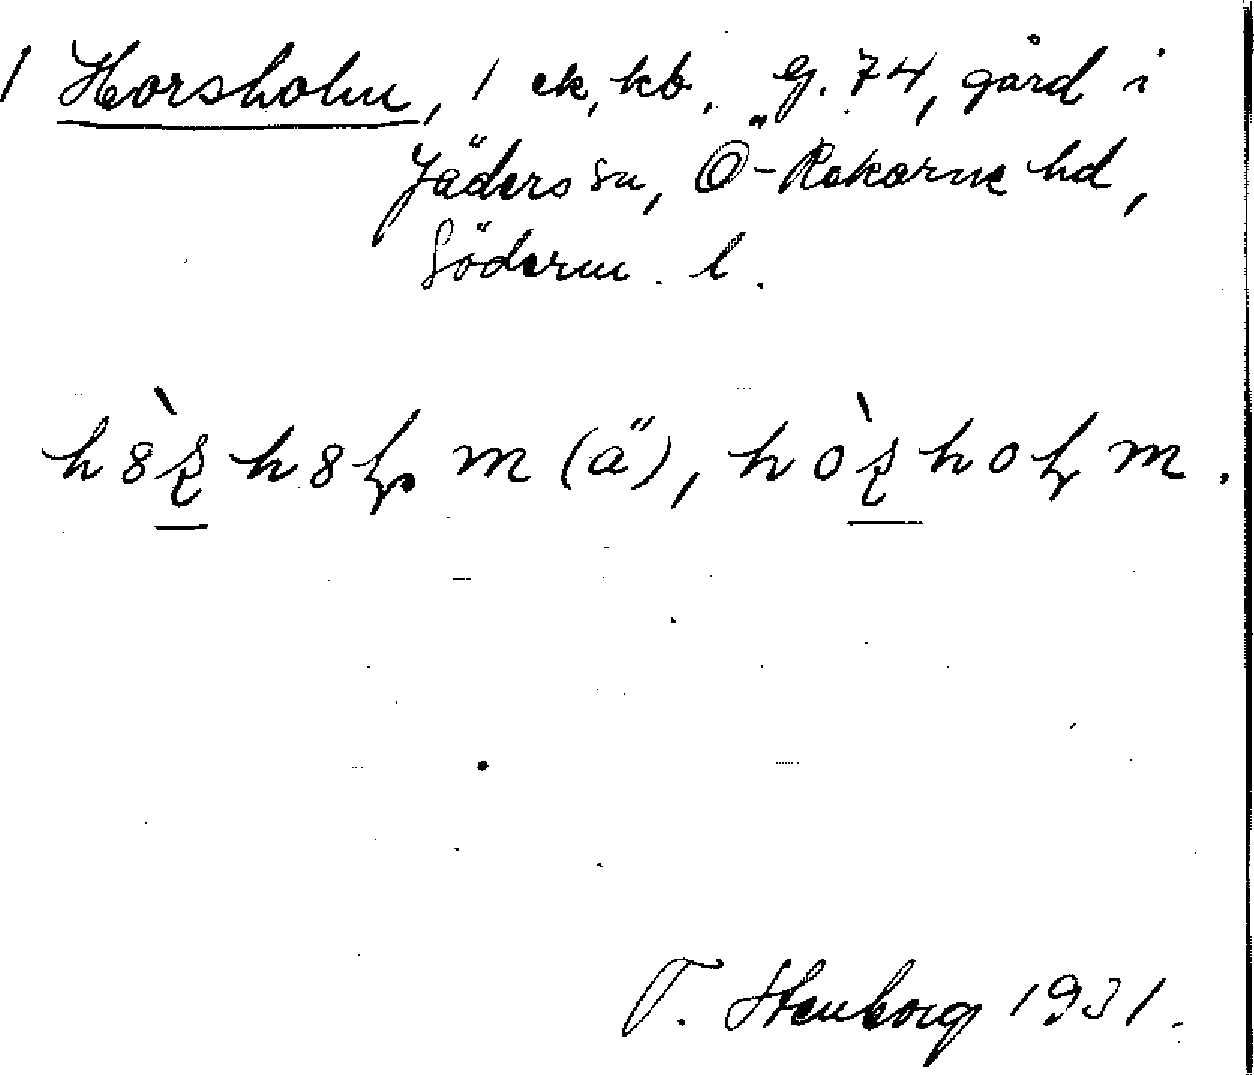 1 Horsholm, 1 ek, kb, G. 74, gård i
Jäders sn, Ö-Rekarne hd,
Söderm. l.
h8̀ʂh8ɭm (ä), hòʂhoɭm.
T. Stenborg 1931.